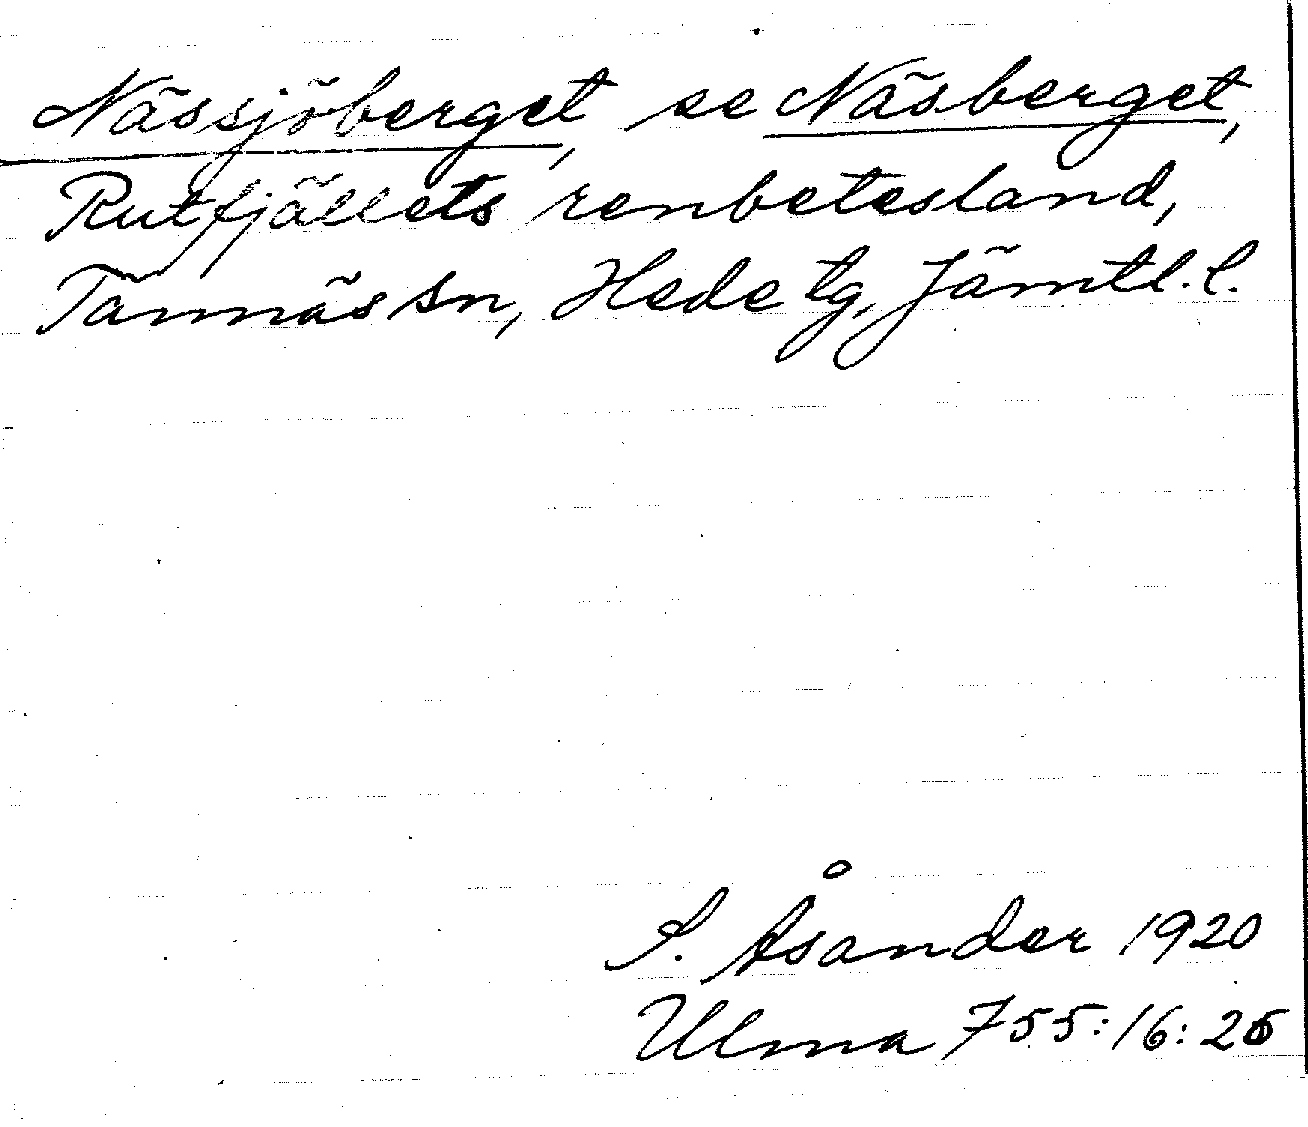 Nässjöberget, se Näsberget,
Rutfjällets renbetesland,
Tännäs sn, Hede tg, Jämtl. l.
S. Åsander 1920
Ulma 755:16:26